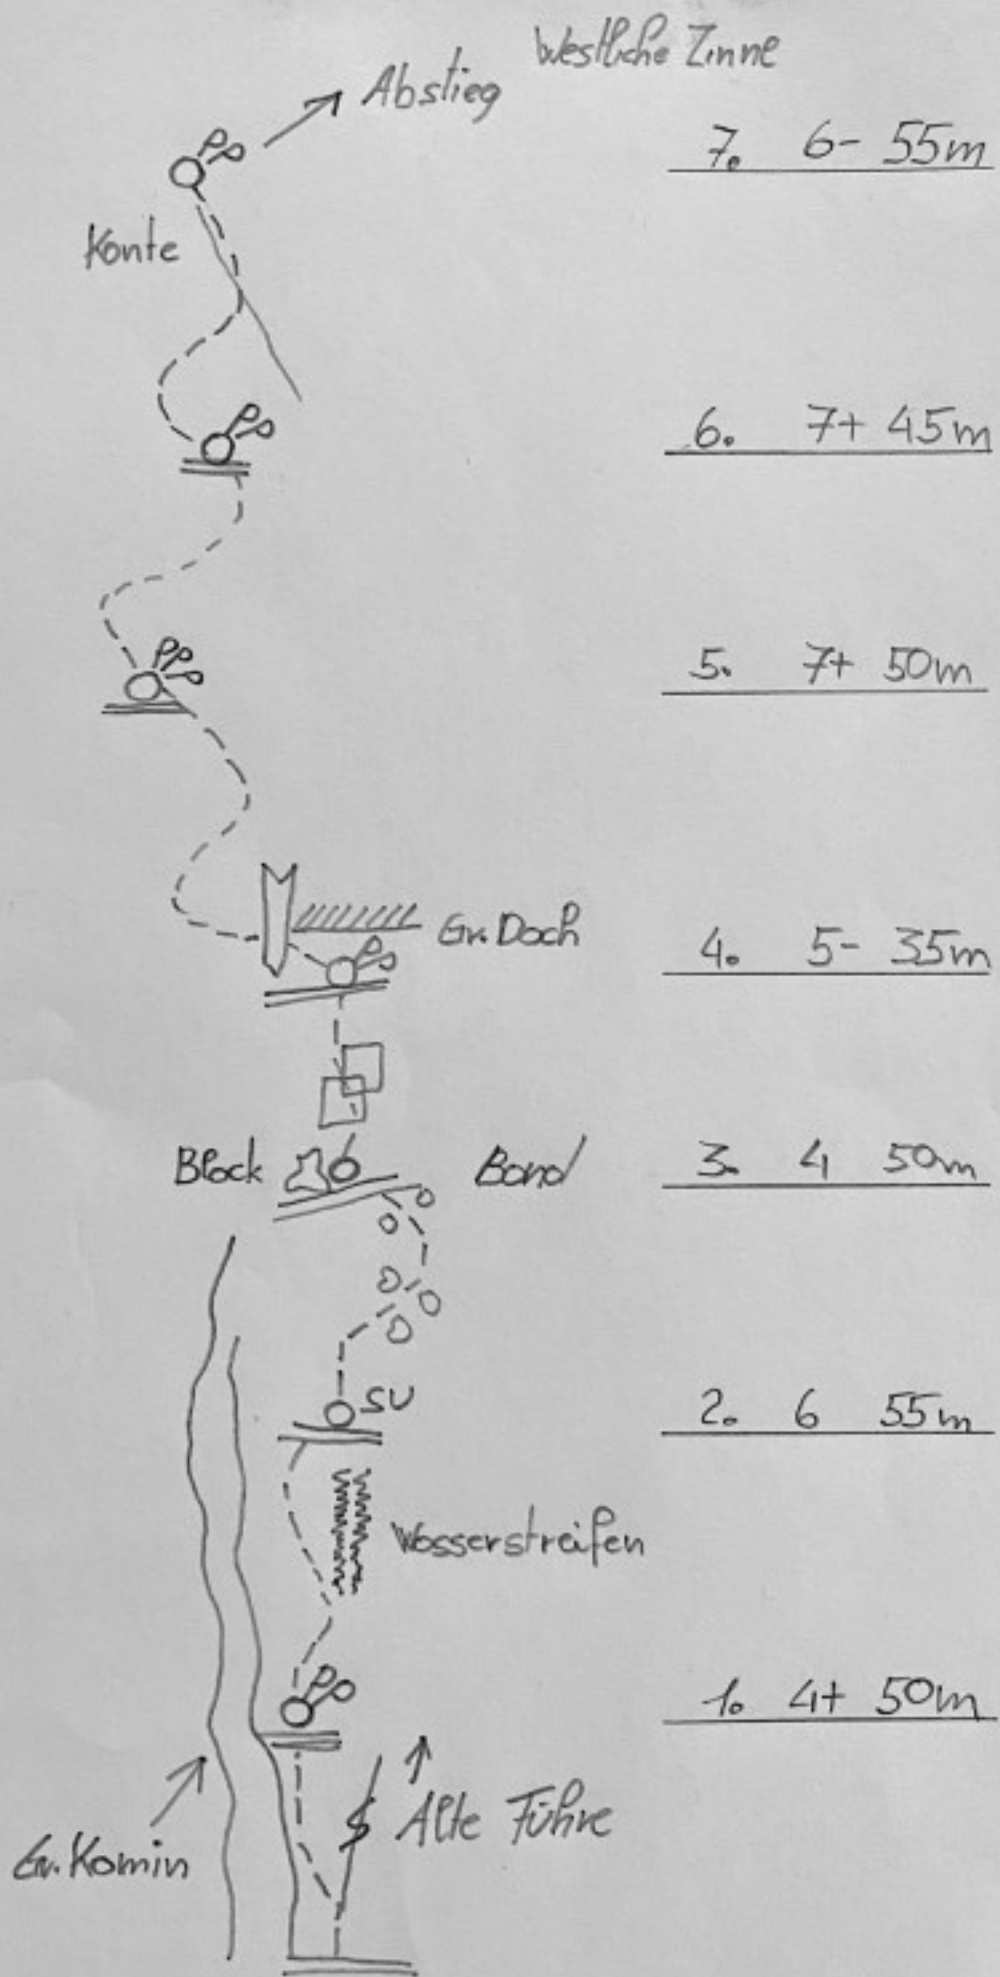 Westliche Zinne
Abstieg
7. 6- 55m
Konte
6. 7+ 45m
5. 7+ 50m
Gr. Doch
4. 5- 35m
Block
Bond
3. 4 50m
SU
2. 6 55m
Wosserstreifen
1. 4+ 50m
Alte Führe
Gr. Komin